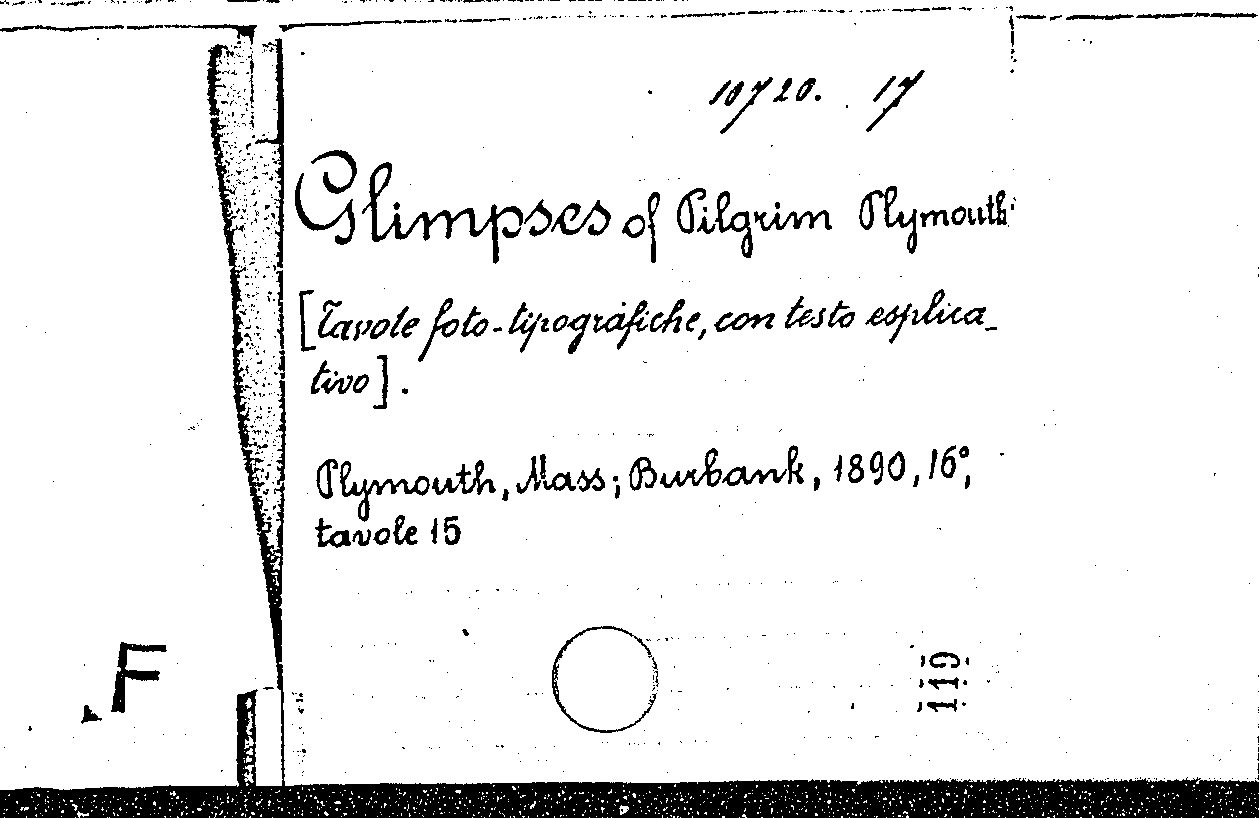 10720. 17
Glimpses of Pilgrim Plymouth
[Tavole foto-tipografiche, con testo esplica_
tivo].
Plymouth, Mass; Burbank, 1890, 16°,
tavole 15
F
119